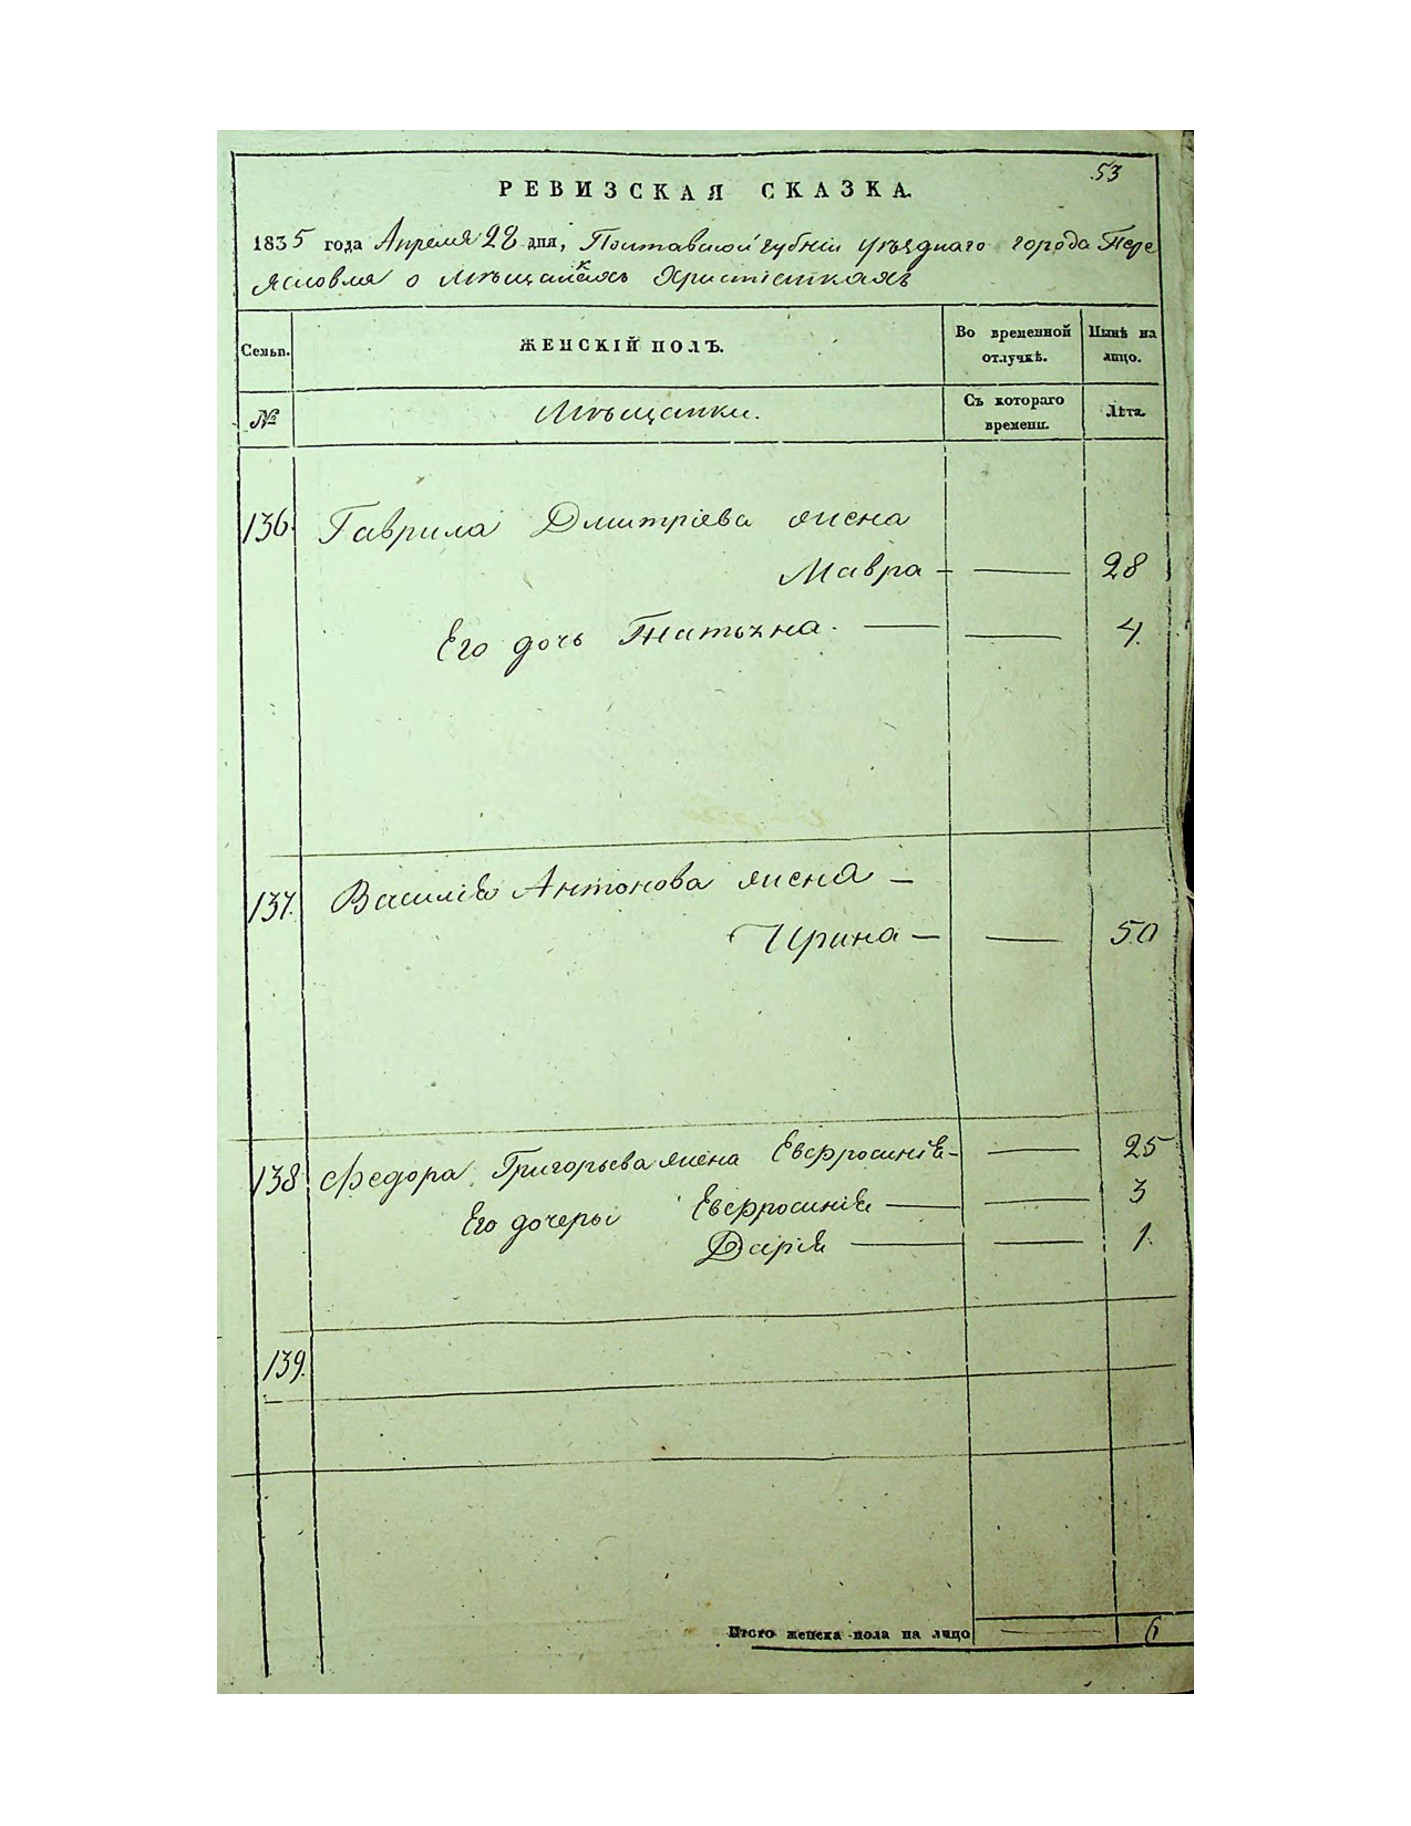 53
РЕВИЗСКАЯ СКАЗКА.
1835 года Апреля 28 дня, Полтавской губніи уѣзднаго города Пере
яславля о мѣщанкахъ Христіанкахъ
Семьи. ЖЕНСКІЙ ПОЛЪ. Во временной отлучкѣ. Нынѣ на лицо.
№ Мѣщанки. Съ котораго времени. Лѣта.
136. Гаврила Дмитріева жена
Мавра — — 28
Его дочь Татьяна. — — 4.
137. Василія Антонова жена —
Ирина — — 50
138 Федора Григорьева жена Евфросинія — — 25
Его дочеры Евфросинія — — 3
Дарія — — 1.
139.
Итого женска пола на лицо — 6